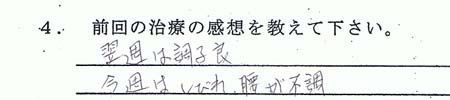 4. 前回の治療の感想を教えて下さい。
翌週は調子良
今週はしびれ、腰が不調